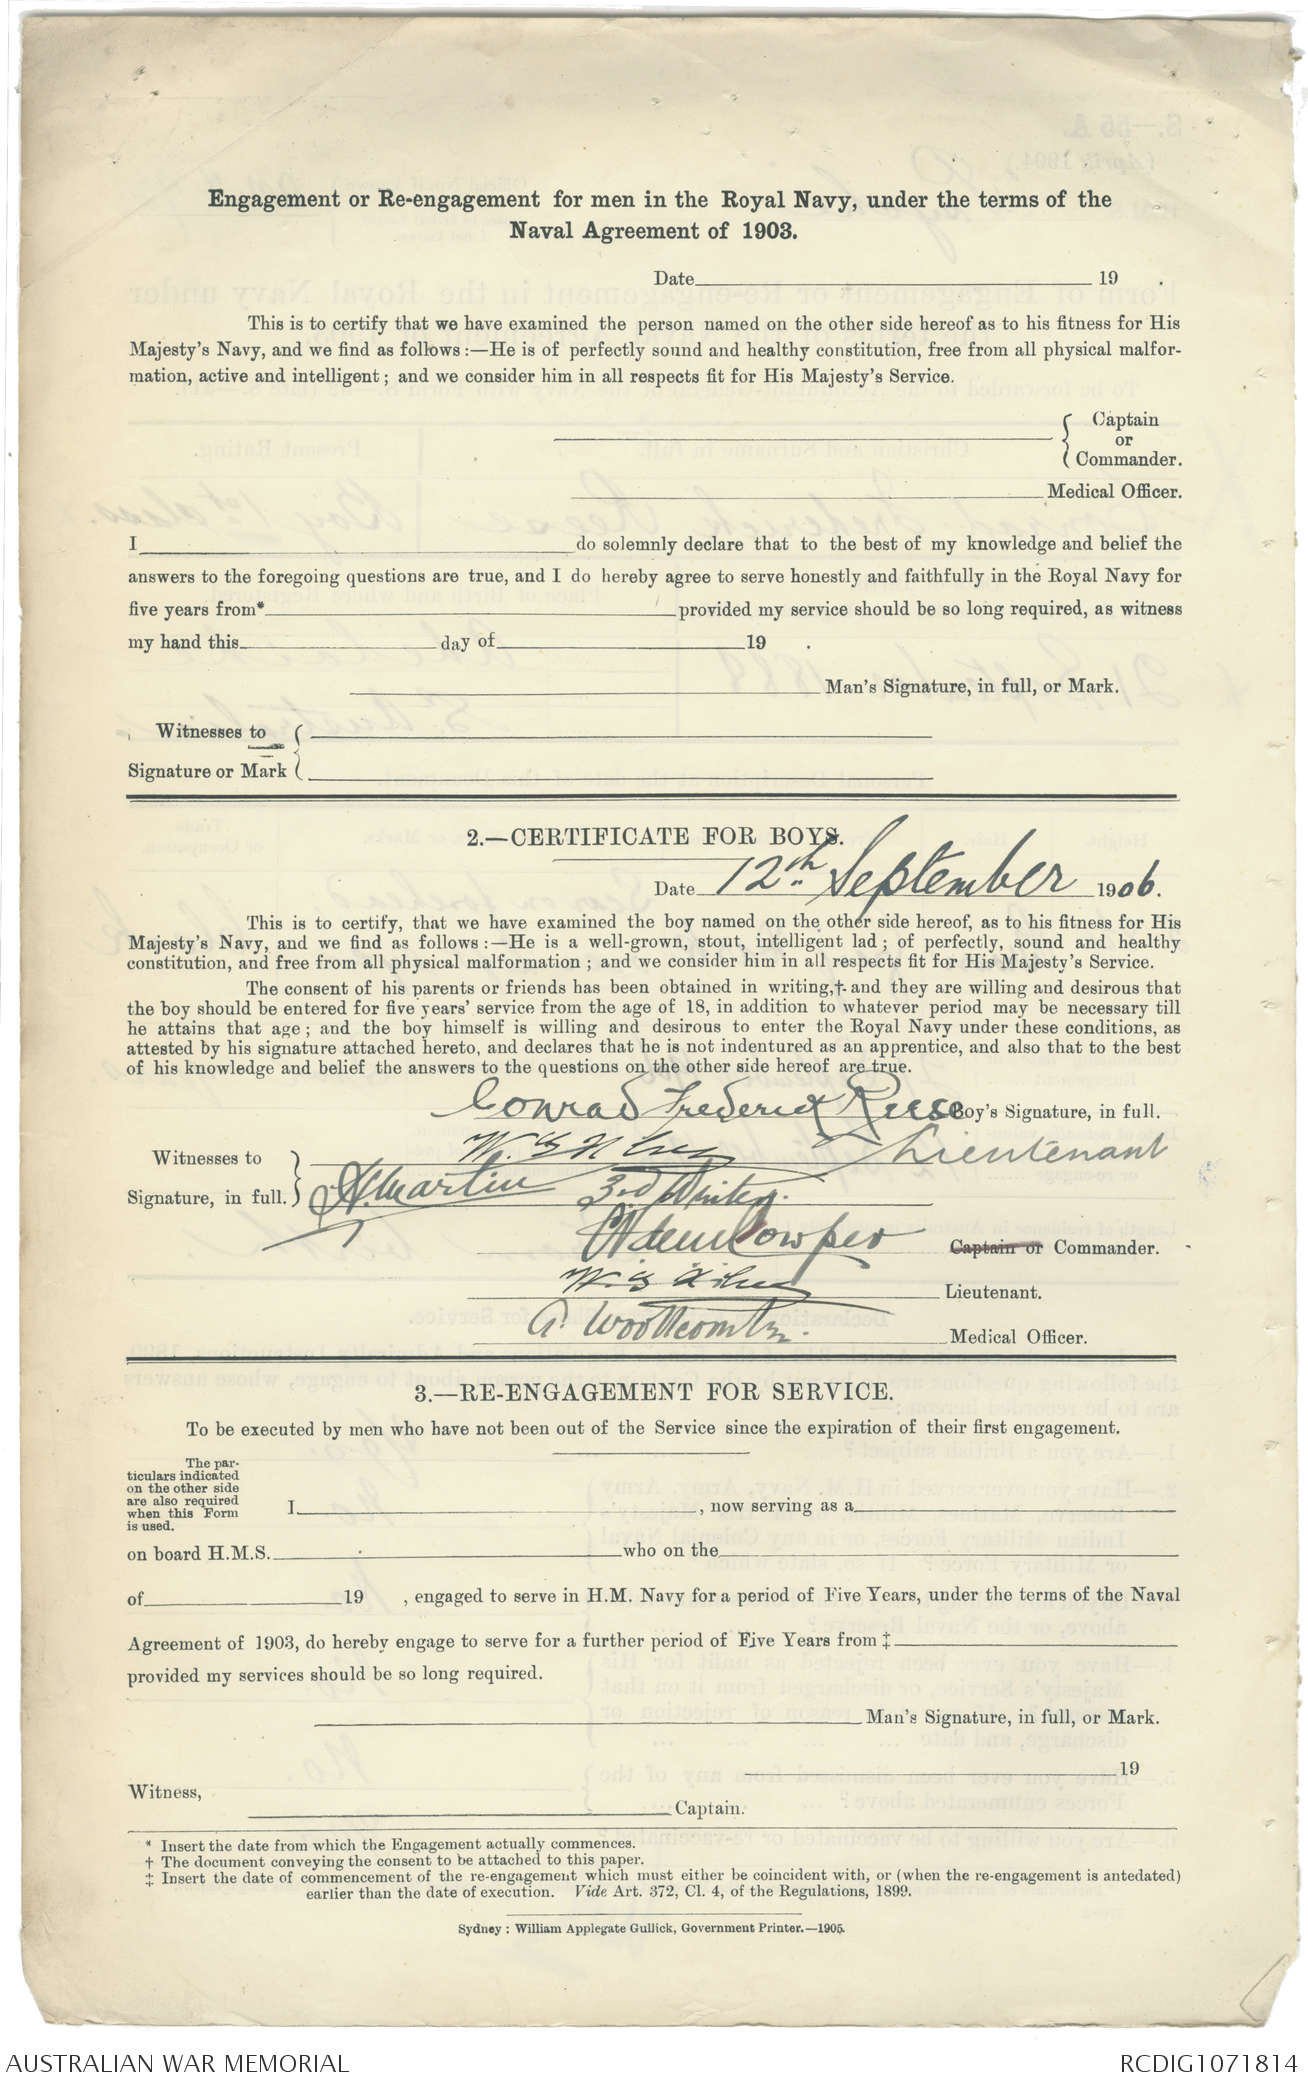 Engagement or Re-engagement for men in the Royal Navy, under the terms of the
Naval Agreement of 1903.
Date 19 .
This is to certify that we have examined the person named on the other side hereof as to his fitness for His
Majesty's Navy, and we find as follows :—He is of perfectly sound and healthy constitution, free from all physical malfor-
mation, active and intelligent ; and we consider him in all respects fit for His Majesty's Service.
Captain
or
Commander.
Medical Officer.
I do solemnly declare that to the best of my knowledge and belief the
answers to the foregoing questions are true, and I do hereby agree to serve honestly and faithfully in the Royal Navy for
five years from* provided my service should be so long required, as witness
my hand this day of 19 .
Man's Signature, in full, or Mark.
Witnesses to
Signature or Mark
2.—CERTIFICATE FOR BOYS.
Date 12th September 1906.
This is to certify, that we have examined the boy named on the other side hereof, as to his fitness for His
Majesty's Navy, and we find as follows :—He is a well-grown, stout, intelligent lad ; of perfectly, sound and healthy
constitution, and free from all physical malformation ; and we consider him in all respects fit for His Majesty's Service.
The consent of his parents or friends has been obtained in writing,† and they are willing and desirous that
the boy should be entered for five years' service from the age of 18, in addition to whatever period may be necessary till
he attains that age ; and the boy himself is willing and desirous to enter the Royal Navy under these conditions, as
attested by his signature attached hereto, and declares that he is not indentured as an apprentice, and also that to the best
of his knowledge and belief the answers to the questions on the other side hereof are true.
Conrad Frederick Reese Boy's Signature, in full.
Witnesses to W. G. Lieutenant
Signature, in full. H. Martin 3rd Writer.
Cowper Captain or Commander.
W. G. Lieutenant.
A. Woollcombe. Medical Officer.
3.—RE-ENGAGEMENT FOR SERVICE.
To be executed by men who have not been out of the Service since the expiration of their first engagement.
The par-
ticulars indicated
on the other side
are also required
when this Form
is used.
I , now serving as a
on board H.M.S. who on the
of 19 , engaged to serve in H.M. Navy for a period of Five Years, under the terms of the Naval
Agreement of 1903, do hereby engage to serve for a further period of Five Years from ‡
provided my services should be so long required.
Man's Signature, in full, or Mark.
19
Witness,
Captain.
* Insert the date from which the Engagement actually commences.
† The document conveying the consent to be attached to this paper.
‡ Insert the date of commencement of the re-engagement which must either be coincident with, or (when the re-engagement is antedated)
earlier than the date of execution. Vide Art. 372, Cl. 4, of the Regulations, 1899.
Sydney : William Applegate Gullick, Government Printer.—1905.
AUSTRALIAN WAR MEMORIAL RCDIG1071814